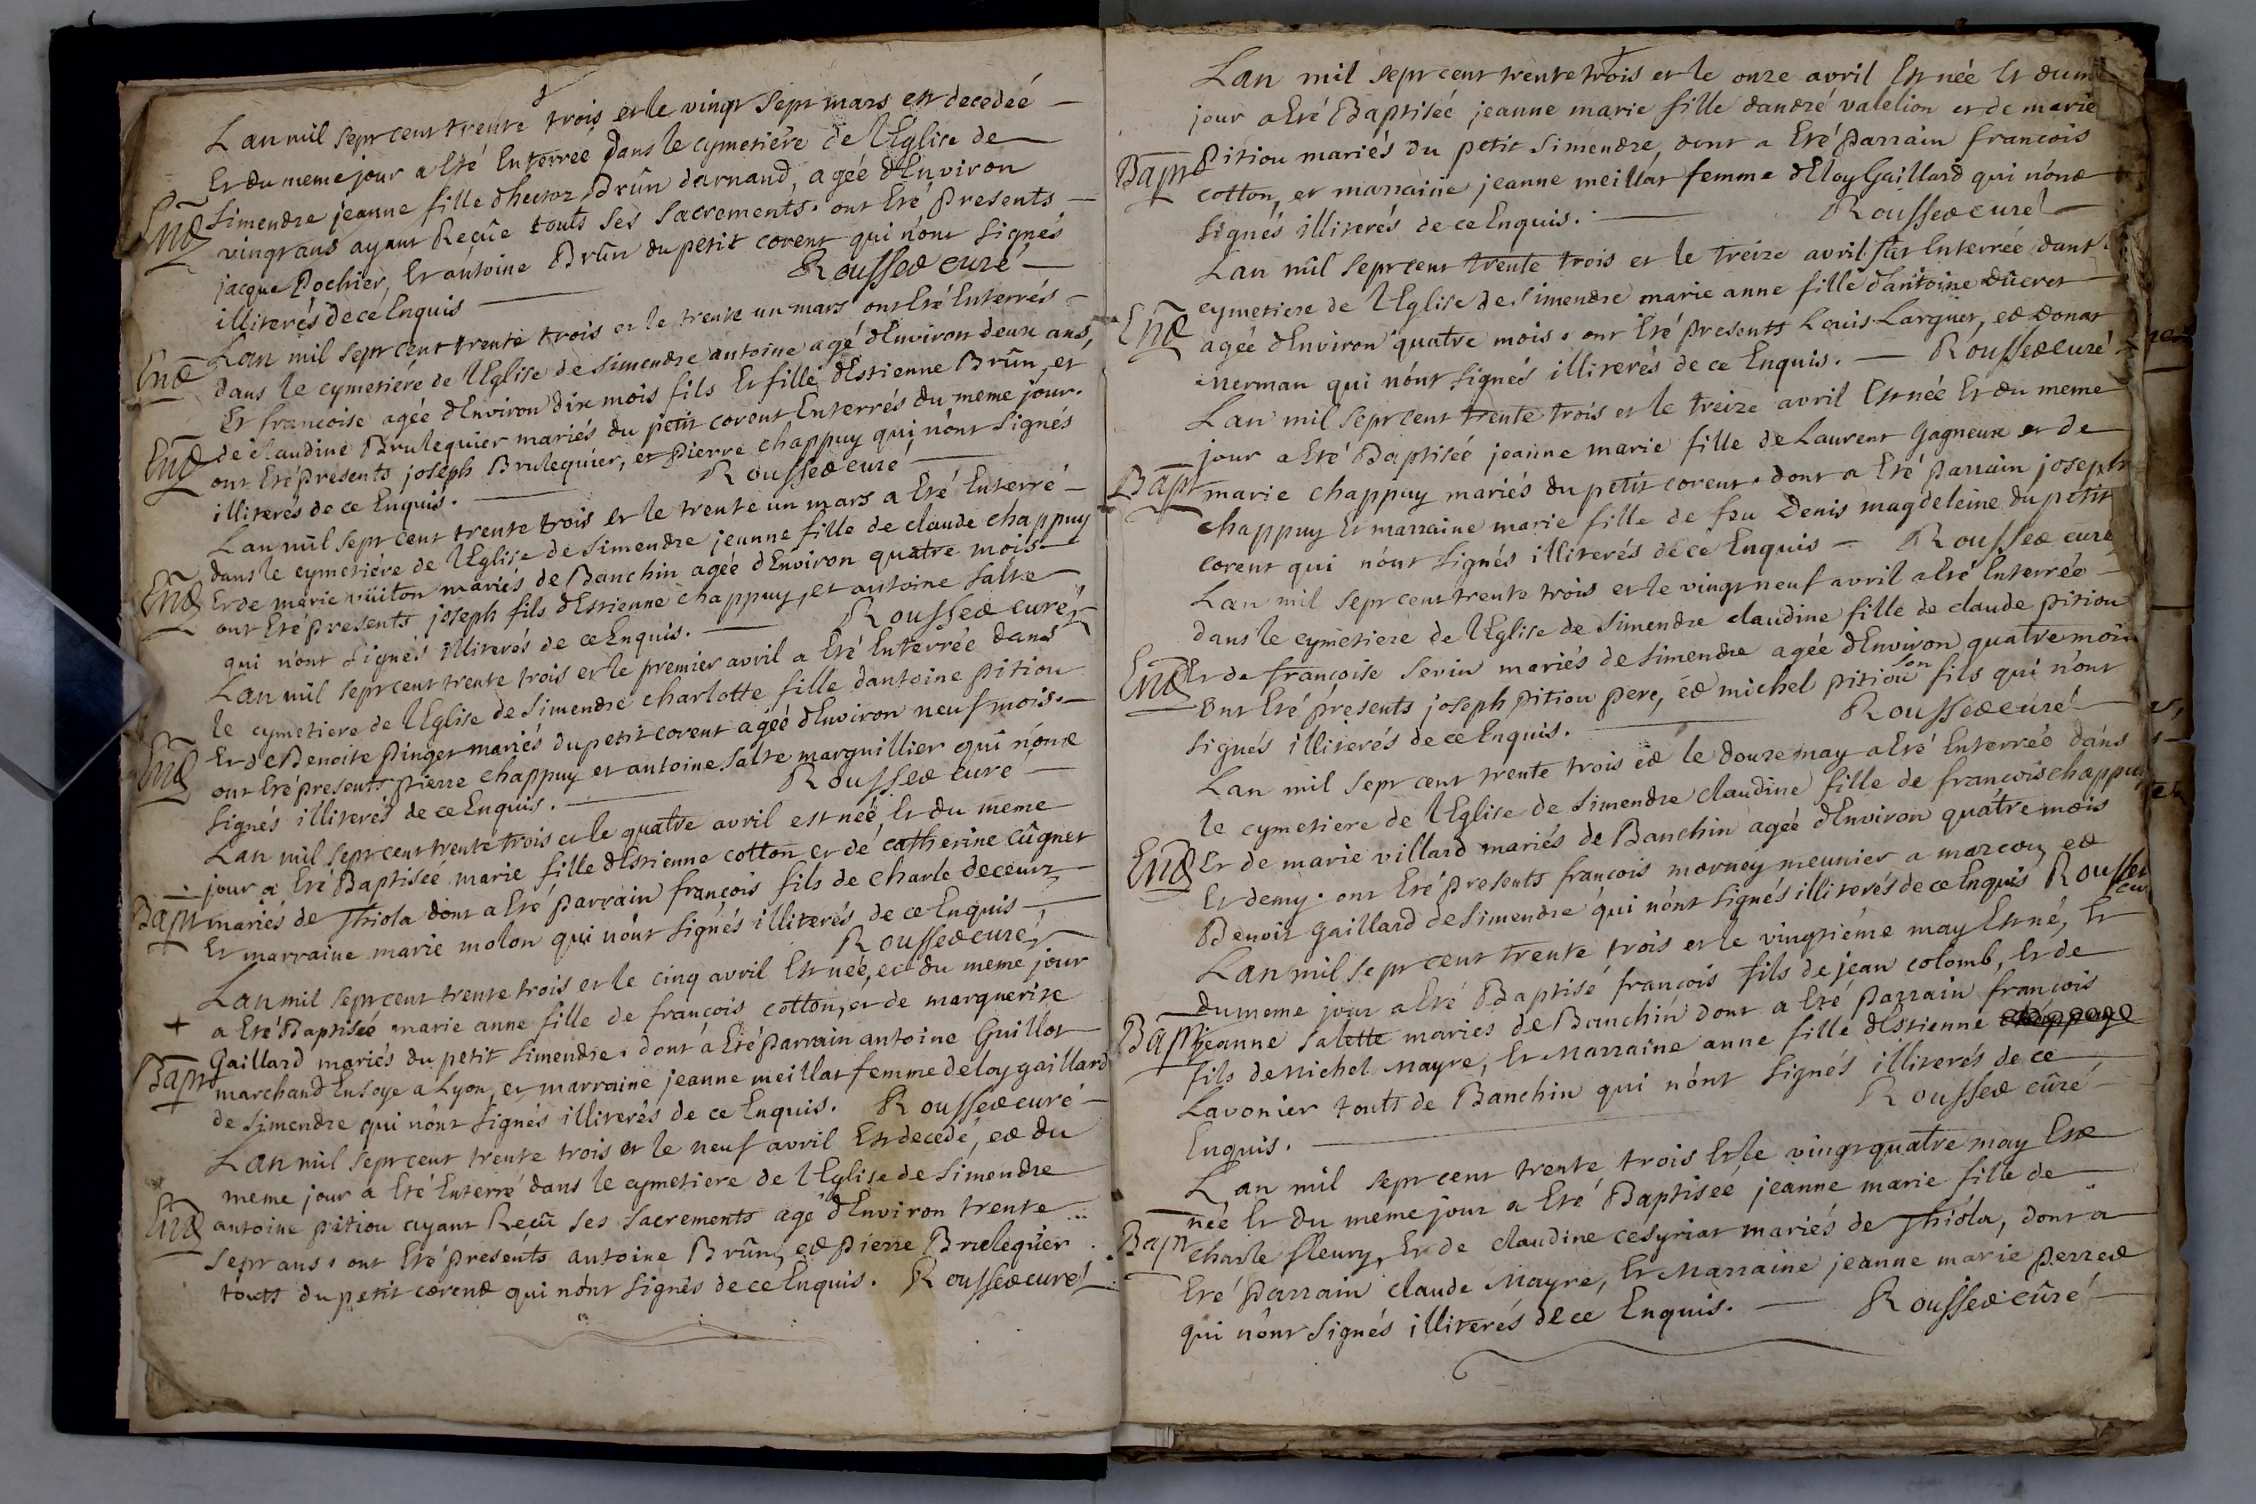 Lan mil sept cent trente trois et le vingt sept mars est decedeé
Et du meme jour a Eté Enterrée dans le cymetiére de l'Eglise de
Simendre jeanne fille d'hector Brûn darnand, agéé d'Environ
End
vingt ans ayant Reçûe touts ses Sacrements. ont Eté Presents
jacque Pochier, Et antoine Brûn du petit corent qui n'ont Signés
illiterés de cé Enquis Roussed curé
Lan mil sept cent trente trois et le trente un mars ont Eté Enterrés
End
dans le cymetiére de l'Eglise de Simendre antoine agé d'Environ deux ans,
Et francoise agée d'Environ dix mois fils Et fille d'Estienne Brûn, et
de claudine Brulequier mariés du petit corent Enterrés du meme jour.
End
ont Eté presents joseph Brulequier, et Pierre chappuy qui n'ont Signés
illiterés de ce Enquis. Roussed curé
Lan mil sept cent trente trois et le trente un mars a Eté Enterré
dans le cymetiére de l'Eglise de Simendre jeanne fille de claude chappuy
End
Et de marie vuiton mariés de Banchin agéé d'Environ quatre mois
ont Eté presents joseph fils d'Estienne chappuy, et antoine Salte
qui n'ont Signés illiterés de ce Enquis. Roussed curé
Lan mil sept cent trente trois et le premier avril a Eté Enterrée dans
le cymetiere de l'Eglise de Simendre charlotte fille dantoine pitiou
End
Et de Benoite Pinget mariés du petit corent agéé d'Environ neuf mois.
ont Eté presents Pierre chappuy et antoine Salte marguillier qui n'ond
Signés illiterés de ce Enquis. Roussed curé
Lan mil sept cent trente trois et le quatre avril est néé Et du meme
jour a Eté Baptiséé marie fille d'Estienne cotton et de catherine Cûgnet
Bapt
mariés de Thiola dont a Eté Parrain françois fils de charle deceur
Et marraine marie molon qui n'ont Signés illiterés de ce Enquis
Roussed curé
Lan mil sept cent trente trois et le cinq avril Est néé, et du meme jour
+ a Eté Baptiséé marie anne fille de francois cotton, et de marguerite
Bapt
Gaillard mariés du petit Simendre. dont a Eté Parrain antoine Guillot
marchand En soye a Lyon, et marraine jeanne meillat femme deloy gaillard
de Simendre qui n'ont Signés illiterés de ce Enquis. Roussed curé
Lan mil sept cent trente trois et le neuf avril Est decedé, ed du
meme jour a Eté Enterré dans le cymetiere de l'Eglise de Simendre
End
antoine pitiou ayant Reçû ses Sacrements agé d'Environ trente
Sept ans. ont Eté presents antoine Brûn, ed Pierre Brulequier
touts du petit corend qui n'ont Signés de ce Enquis. Roussed curé
Lan mil sept cent trente trois et le onze avril Est néé Et du
jour a Eté Baptiséé jeanne marie fille dandré valelion et de marie
Bapt
Pitiou mariés du petit Simendre, dont a Eté Parrain francois
cotton, et marraine jeanne meillat femme d'Eloy Gaillard qui n'ond
Signés illiterés de ce Enquis. Roussed curé
Lan mil sept cent trente trois et le treize avril fut Enterrée dans
cymetiere de l'Eglise de Simendre marie anne fille d'antoine dûcret
End
agéé d'Environ quatre mois. ont Eté presents Louis Larguet, ed donat
nerman qui n'ont Signés illiterés de ce Enquis. Roussed curé
Lan mil sept cent trente trois et le treize avril Est néé Et du meme
jour a Eté Baptiséé jeanne marie fille de Laurent Gagneux et de
Bapt
marie chappuy mariés du petit corent. dont a Eté parrain joseph
chappuy Et marraine marie fille de feu Denis magdeleine du petit
corent qui n'ont Signés illiterés de cé Enquis Roussed curé
Lan mil sept cent trente trois et le vingt neuf avril a Eté Enterrée
dans le cymetiere de l'Eglise de Simendre claudine fille de claude pitiou
End
Et de françoise Serin mariés de Simendre agéé d'Environ quatre mois
ont Eté présents joseph pitiou pere, ed michel pitiou son fils qui n'ont
Signés illiterés de ce Enquis. Roussed curé
Lan mil sept cent trente trois ed le douze may a Eté Enterréé dans
le cymetiere de l'Eglise de Simendre claudine fille de francois chappuy
End
Et de marie villard mariés de Banchin agéé d'Environ quatre mois
Et demy. ont Eté presents francois morney meunier a marcou, ed
Benoit Gaillard de Simendre qui n'ont Signés illiterés de ce Enquis Roussed
cur
Lan mil sept cent trente trois et le vingtiéme may Est né, Et
du meme jour a Eté Baptisé françois fils de jean colomb, Et de
Bapt
jeanne Salette mariés de Banchin dont a Eté Parrain francois
fils de Michel Mayre, Et Marraine anne fille d'Estienne
Lavonier touts de Banchin qui n'ont Signés illiterés de ce
Enquis. Roussed cûré
Lan mil sept cent trente trois Et le vingt quatre may Est
néé Et du meme jour a Eté Baptisée jeanne marie fille de
Bapt
charle fleury, Et de claudine cesyriat mariés de Thióla, dont a
Eté Parrain claude Mayre, Et Marraine jeanne marie perred
qui n'ont Signés illiterés de ce Enquis. Roussed cûré